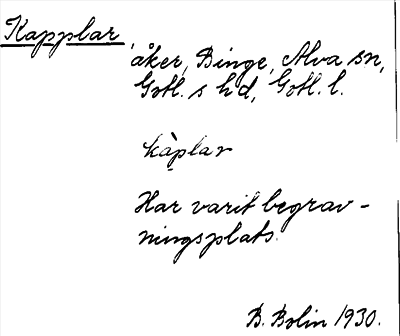 Kapplar,
åker, Binge, Alva sn,
Gotl. s hd, Gotl. l.
kàplar
Har varit begrav-
ningsplats.
B. Bolin 1930.